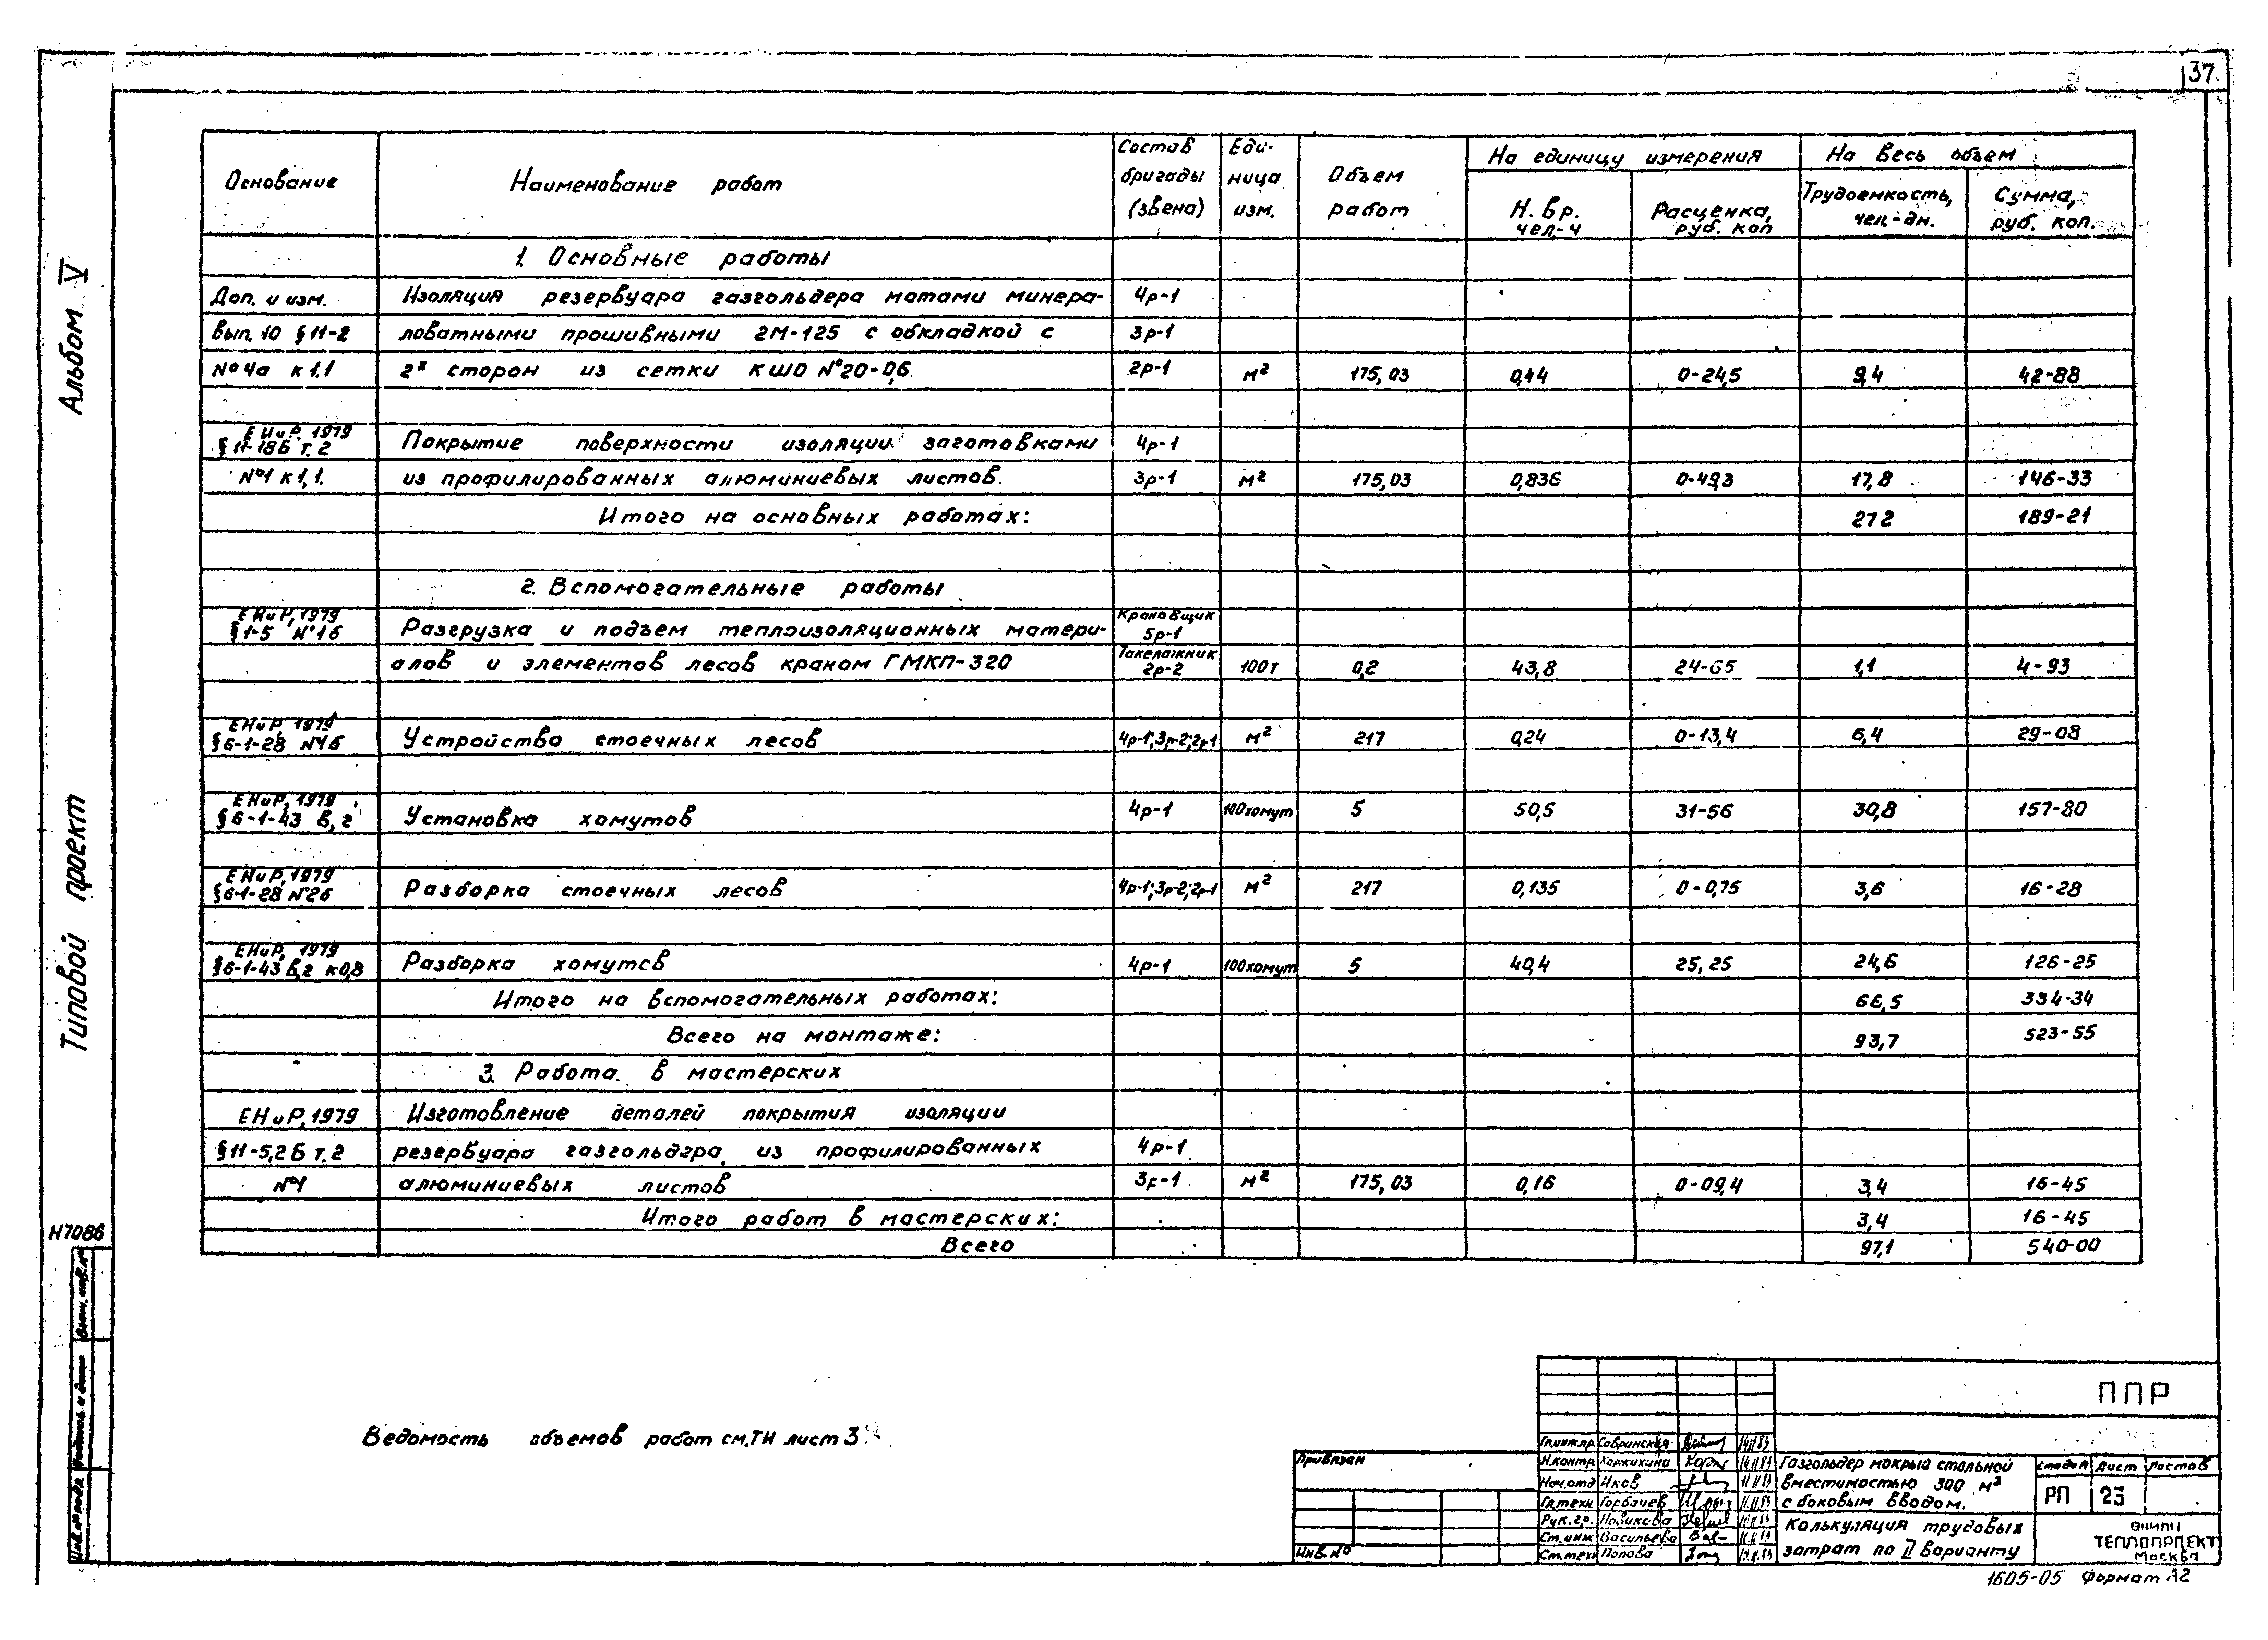 37
Альбом V
Типовой проект
Н7086
Взам. инв. №
Подпись и дата
Инв. № подл.
Основание
Наименование работ
Состав бригады (звена)
Еди-ница изм.
Объем работ
На единицу измерения
На весь объем
Н. вр. чел-ч
Расценка, руб. коп
Трудоемкость, чел.-дн.
Сумма, руб. коп.
1. Основные работы
Доп. и изм. Изоляция резервуара газгольдера матами минера- 4р-1
Вып. 10 §11-2 ловатными прошивными 2М-125 с обкладкой с 3р-1
№4а к 1.1 2х сторон из сетки КШО №20-0,6. 2р-1 м² 175,03 0,44 0-24,5 9,4 42-88
ЕНиР. 1979
§11-18Б т. 2 Покрытие поверхности изоляции заготовками 4р-1
№1 к1,1. из профилированных алюминиевых листов. 3р-1 м² 175,03 0,836 0-49,3 17,8 146-33
Итого на основных работах: 272 189-21
2. Вспомогательные работы
ЕНиР, 1979 Крановщик
§1-5 №1б Разгрузка и подъем теплоизоляционных матери- 5р-1
Такелажник
алов и элементов лесов краном ГМКП-320 2р-2 100т 0,2 43,8 24-65 1,1 4-93
ЕНиР, 1979
§6-1-28 №1б Устройства стоечных лесов 4р-1;3р-2;2р-1 м² 217 0,24 0-13,4 6,4 29-08
ЕНиР, 1979
§6-1-43 в, г Установка хомутов 4р-1 100хомут 5 50,5 31-56 30,8 157-80
ЕНиР, 1979
§6-1-28 №2б Разборка стоечных лесов 4р-1;3р-2;2р-1 м² 217 0,135 0-0,75 3,6 16-28
ЕНиР, 1979
§6-1-43 в,г к0,8 Разборка хомутов 4р-1 100хомут 5 40,4 25,25 24,6 126-25
Итого на вспомогательных работах: 66,5 334-34
Всего на монтаже: 93,7 523-55
3. Работа в мастерских
ЕНиР, 1979 Изготовление деталей покрытия изоляции
§11-5,2Б т. 2 резервуара газгольдера, из профилированных 4р-1
№1 алюминиевых листов 3р-1 м² 175,03 0,16 0-09,4 3,4 16-45
Итого работ в мастерских: 3,4 16-45
Всего 97,1 540-00
Ведомость объемов работ см. ТИ лист 3.
Привязан
Инв. №
Гл.инж.пр. Савранская
Н.контр. Коржихина
Нач.отд Иков
Гл.техн. Горбачев
Рук. гр. Новикова
Ст.инж Васильева
Ст.техн Попова
ППР
Газгольдер мокрый стальной
вместимостью 300 м³
с боковым вводом.
Стадия Лист Листов
РП 23
Калькуляция трудовых
затрат по II варианту
ВНИПИ
ТЕПЛОПРОЕКТ
Москва
1605-05 Формат А2